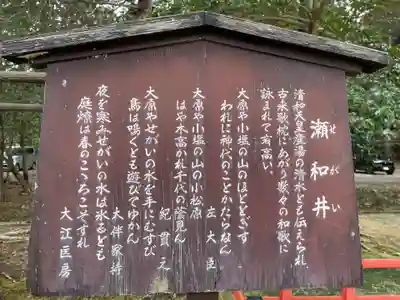 瀬和井
せがい
清和天皇産湯の清水とも伝えられ
古来歌枕にかなう数々の和歌に
詠まれて有高い。
大原や小塩の山のほとゝぎす
われに神代のことかたらなん
左大臣
大原や小塩の山の小松原
はや木高かれ千代の蔭見ん
紀貫之
大原やせがいの水を手にむすび
鳥は鳴くとも遊びてゆかん
大伴家持
夜を寒みせがいの水は氷るとも
庭燎は春のこゝろこそすれ
大江匡房